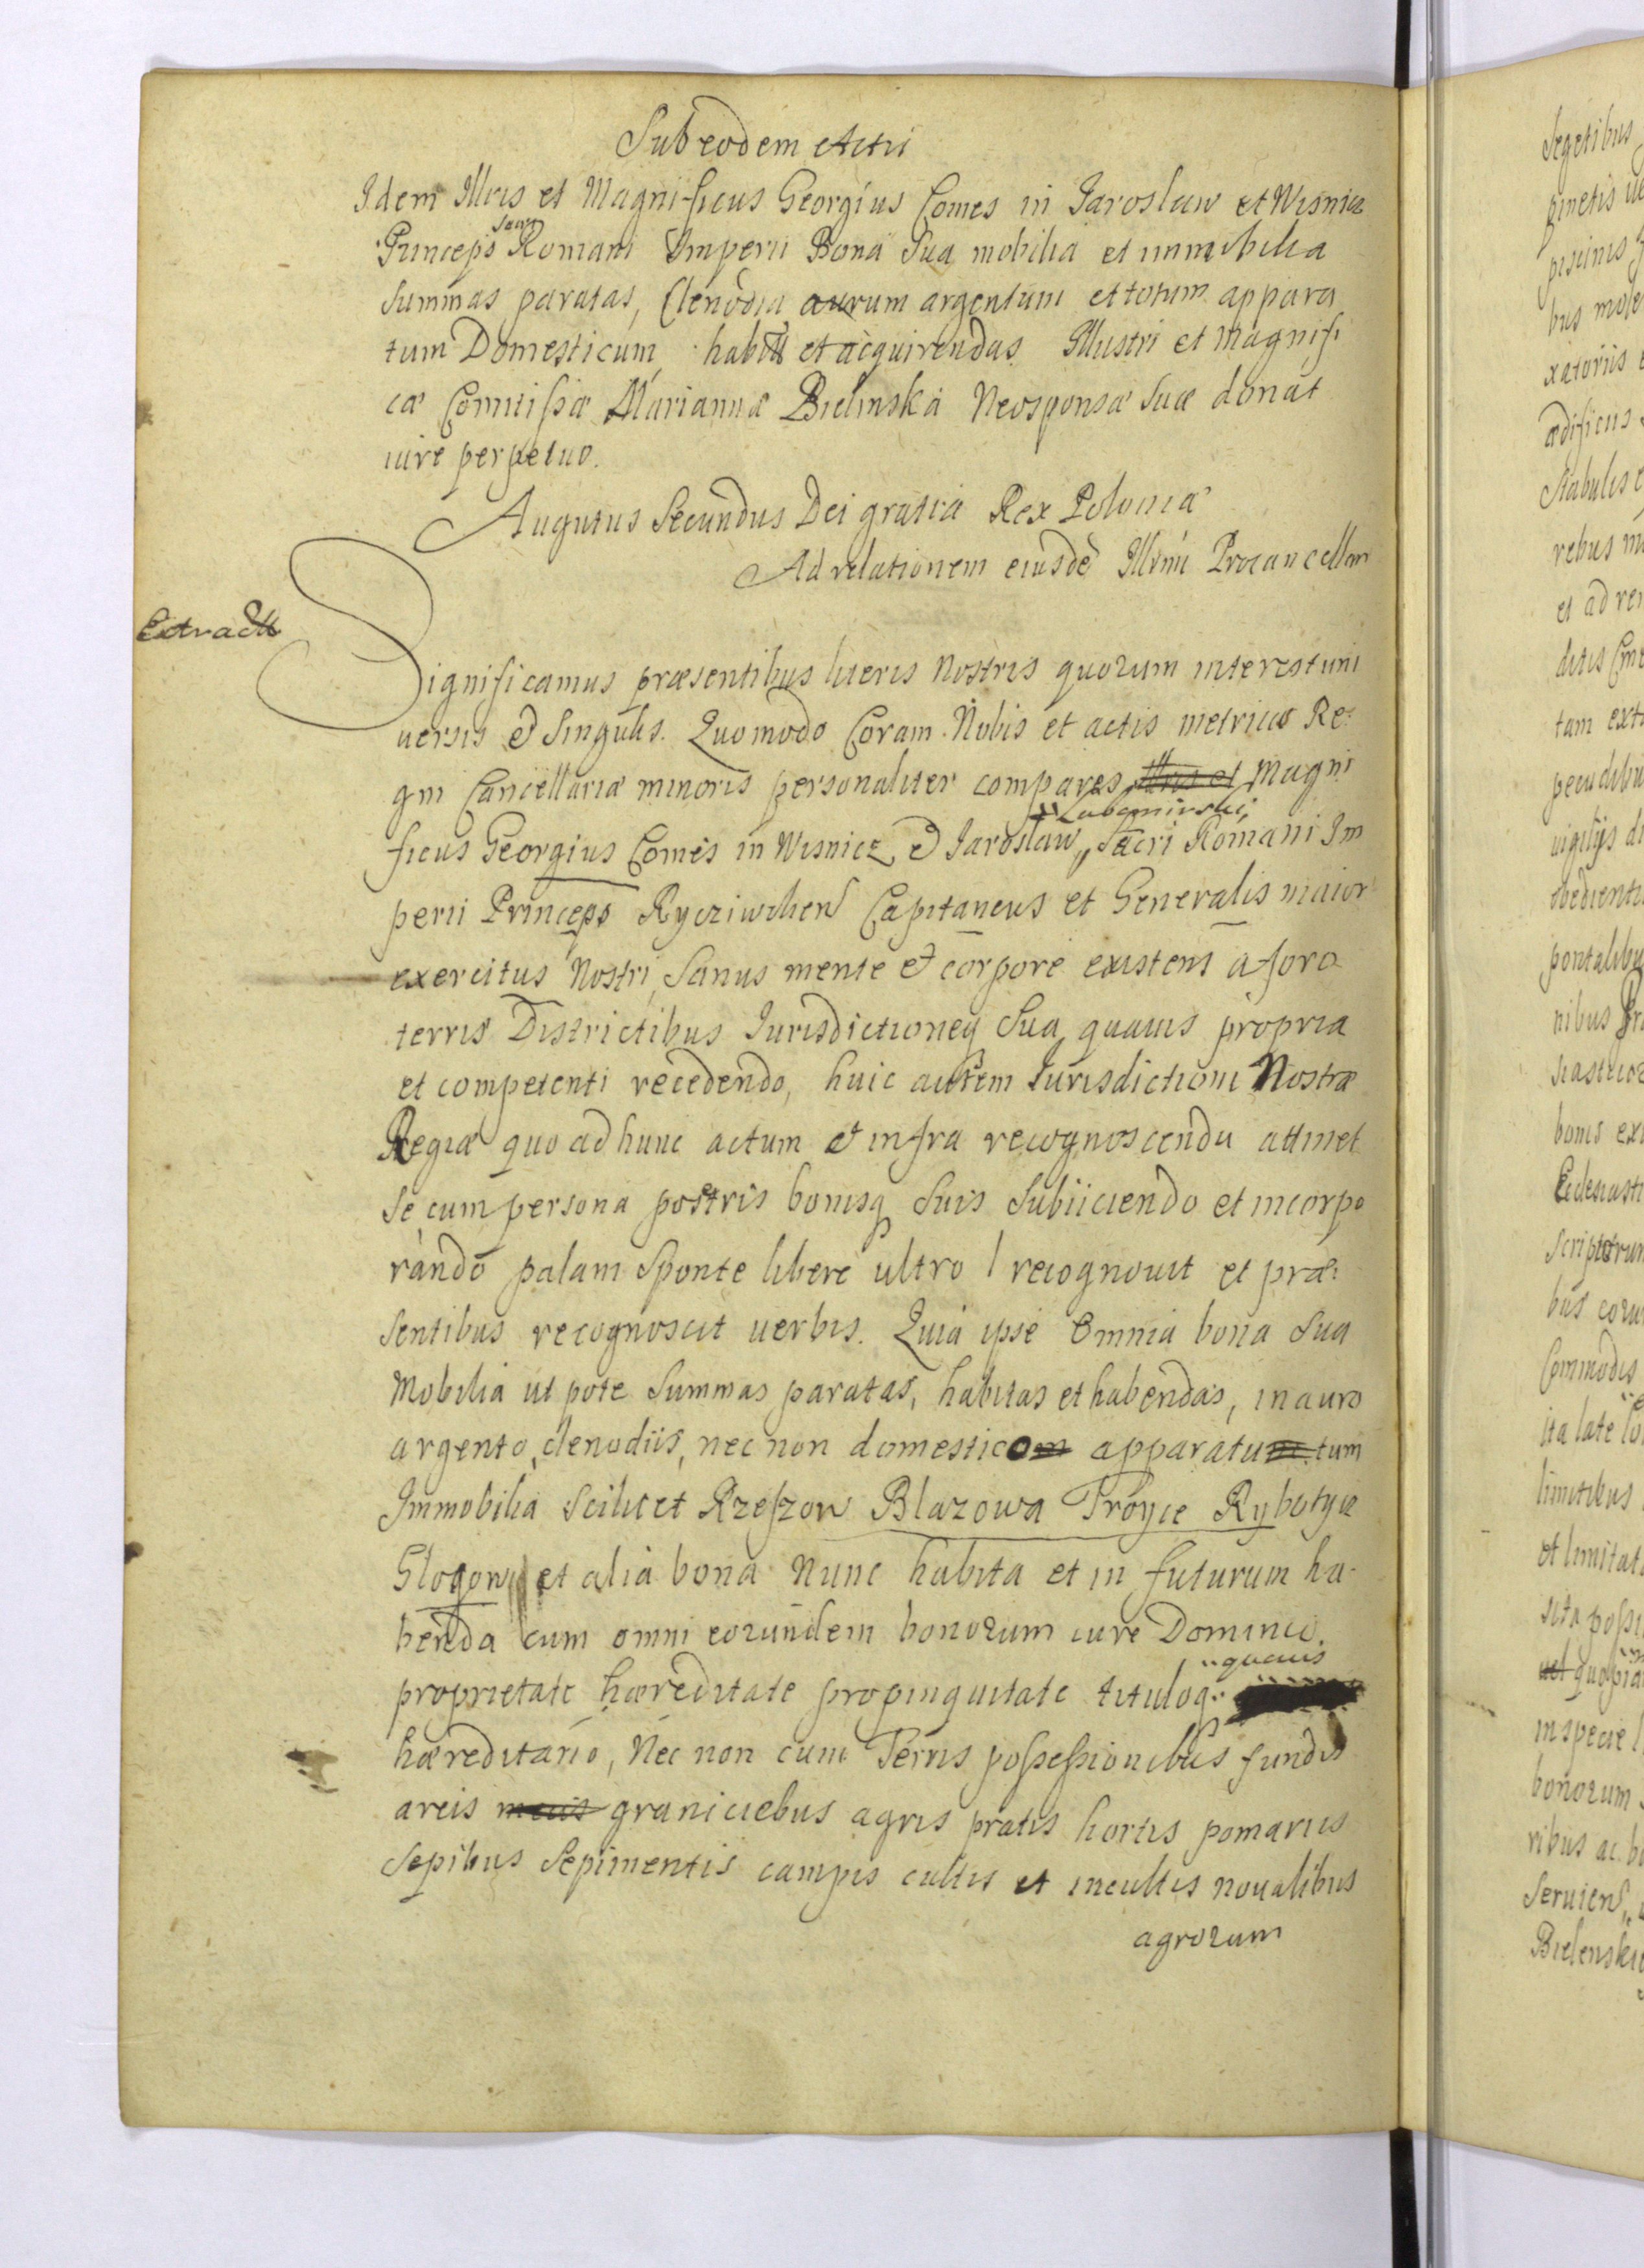 Sub eodem Actu
Idem Illris et Magnificus Georgius Comes in Jaroslaw et Wisnicz
Princeps Sacri Romani Imperii Bona Sua mobilia et immobilia
Summas paratas, Clenodia aurum argentum et totum appara
tum Domesticum, habitt et acquirendas Illustri et Magnifi
cæ Comitissæ Mariannæ Bielinska Neosponsæ Suæ donat
iure perpetuo.
Augutus Secundus Dei gratia Rex Poloniæ
Ad relationem eiusdē Illrmi Procancellar
Extractt
Significamus præsentibus literis Nostris quorum interest uni
uersis et Singulis. Quomodo Coram Nobis et actis metrices Re
gni Cancellariæ minoris personaliter compares Illris et Magni
ficus Georgius Comes in Wisnicz et Jaroslaw Lubomirski, Sacri Romani Im
perii Princeps Rycziwilien Capitaneus et Generalis maior
exercitus Nostri, Sanus mente et corpore existens a foro
terris Districtibus Jurisdictioneq Sua quauis propria
et competenti recedendo, huic autem Jurisdictioni Nostræ
Regiæ quo ad hunc actum et infra recognoscenda attinet
Se cum persona postris bonisq Suis Subiiciendo et incorpo
rando palam Sponte libere ultro recognouit et præ
sentibus recognoscit uerbis. Quia ipse Omnia bona Sua
Mobilia ut pote Summas paratas, habitas et habendas, in auro
argento, clenodiis, nec non domesticom apparatum tum
Immobilia Scilicet Rzeszow Blazowa Troyce Rybotyce
Glogow et alia bona Nunc habita et in futurum ha
benda cum omni eorundem bonorum iure Dominio
proprietate hæreditate propinquitate tituloq quauis
hæreditario, Nec non cum Terris possessionibus fundis
areis graniciebus agris pratis hortis pomariis
Sepibus Sepimentis campis cultis et incultis noualibus
agrorum
Segetibus
pinetis
piscinis
bus
xatoriis
ædificiis
Stabulis
rebus
et ad
ditis
tam
uigiliis
pontalibus
nibus
bonis
Commodis
ita late
limitibus
et limitat
in specie
bonorum
ribus ac
Seruien